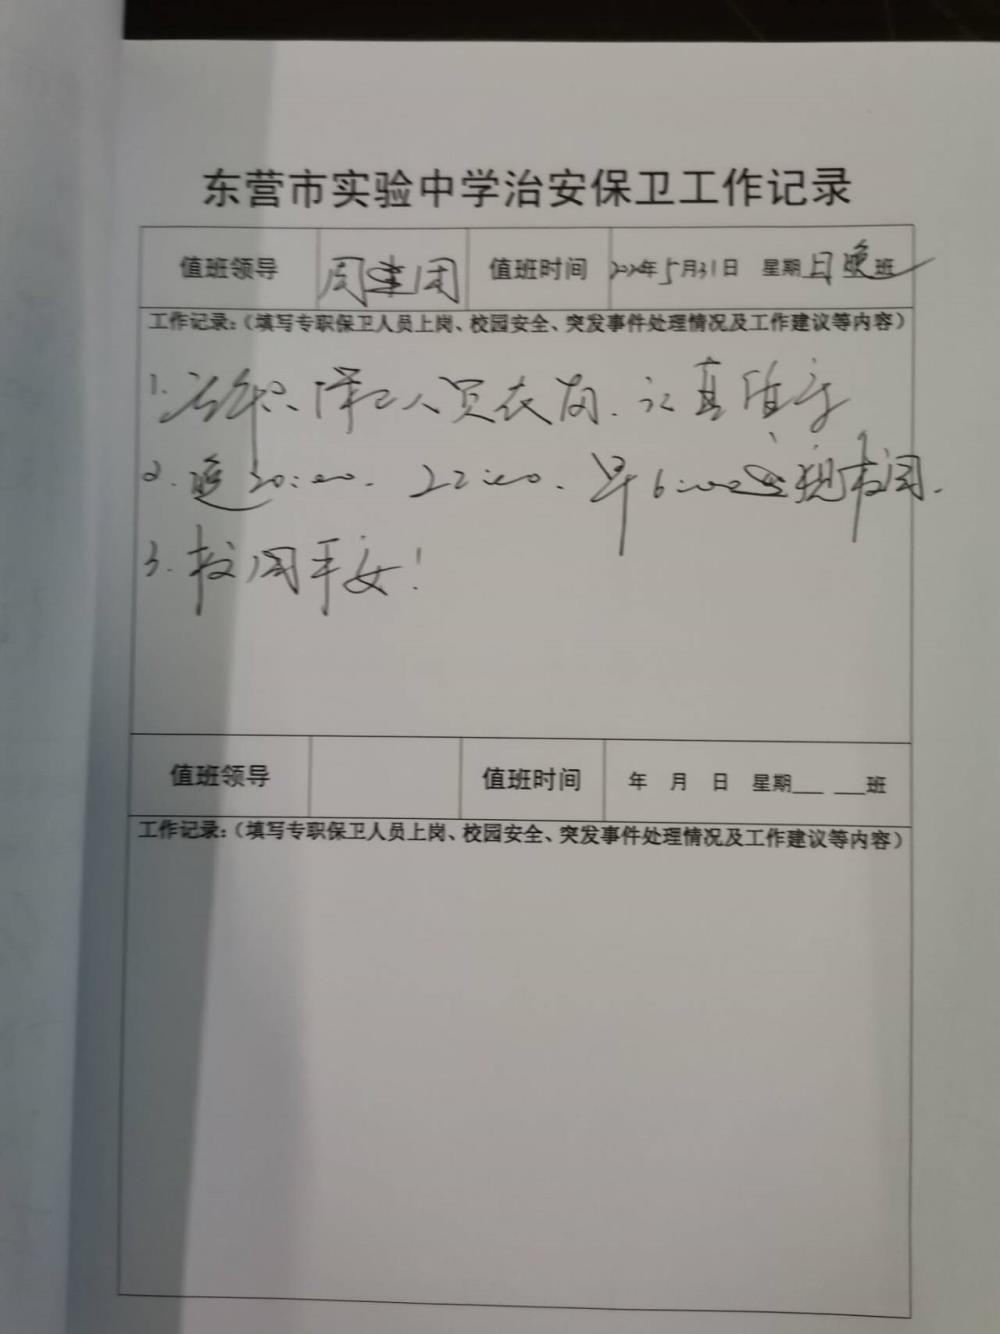 东营市实验中学治安保卫工作记录
值班领导 周建团 值班时间 2020年5月31日 星期日晚班
工作记录:(填写专职保卫人员上岗、校园安全、突发事件处理情况及工作建议等内容)
1. 人员在岗.认真值守
2.晚20:00.22:00.早6:00巡视校园.
3.校园平安!
值班领导 值班时间 年 月 日 星期___ ___班
工作记录:(填写专职保卫人员上岗、校园安全、突发事件处理情况及工作建议等内容)